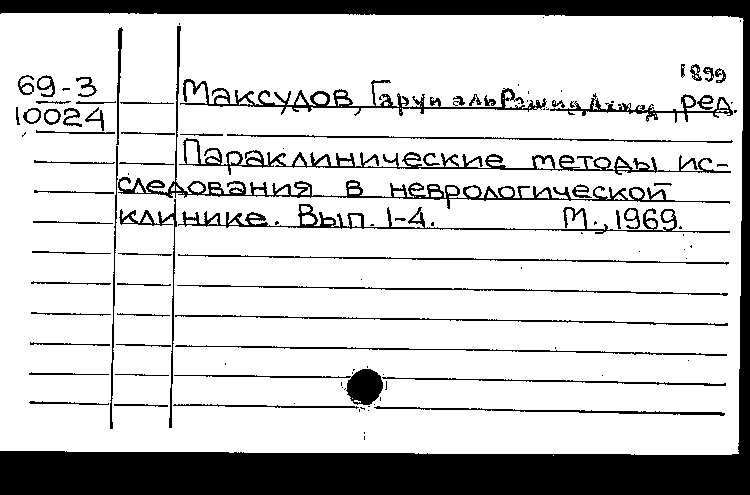 1899
69-3
10024
Максудов, Гарун аль Рашид Ахмед, ред.
Параклинические методы ис-
следования в неврологической
клинике. Вып. 1-4. М., 1969.